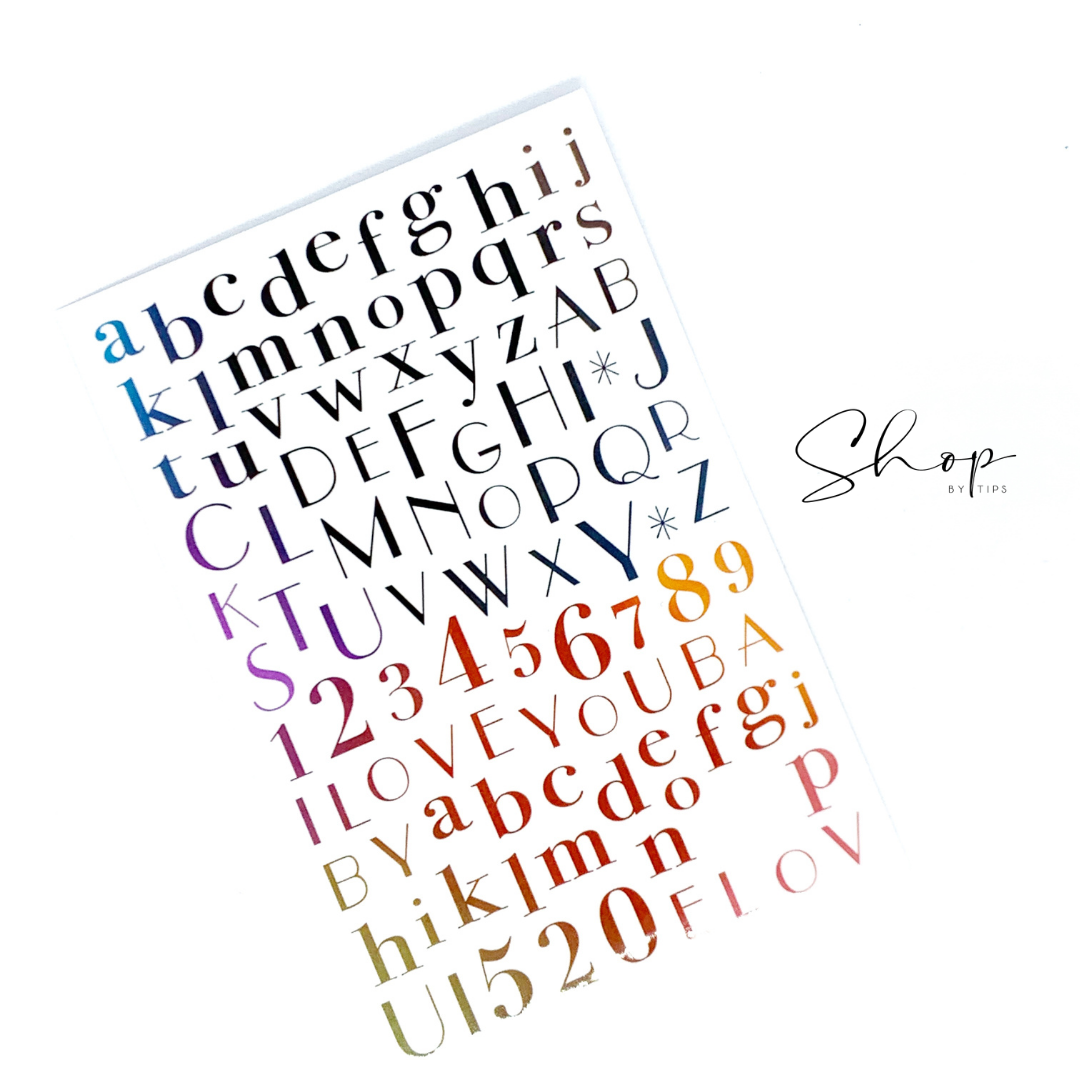 a b c d e f g h i j
k l m n o p q r s
t u v w x y z A B
C D E F G H I * J
K L M N O P Q R
S T U V W X Y * Z
1 2 3 4 5 6 7 8 9
I L O V E Y O U B A
B Y a b c d e f g j
h i k l m n o p
U I 5 2 0 F L O V
Shop
BY TIPS